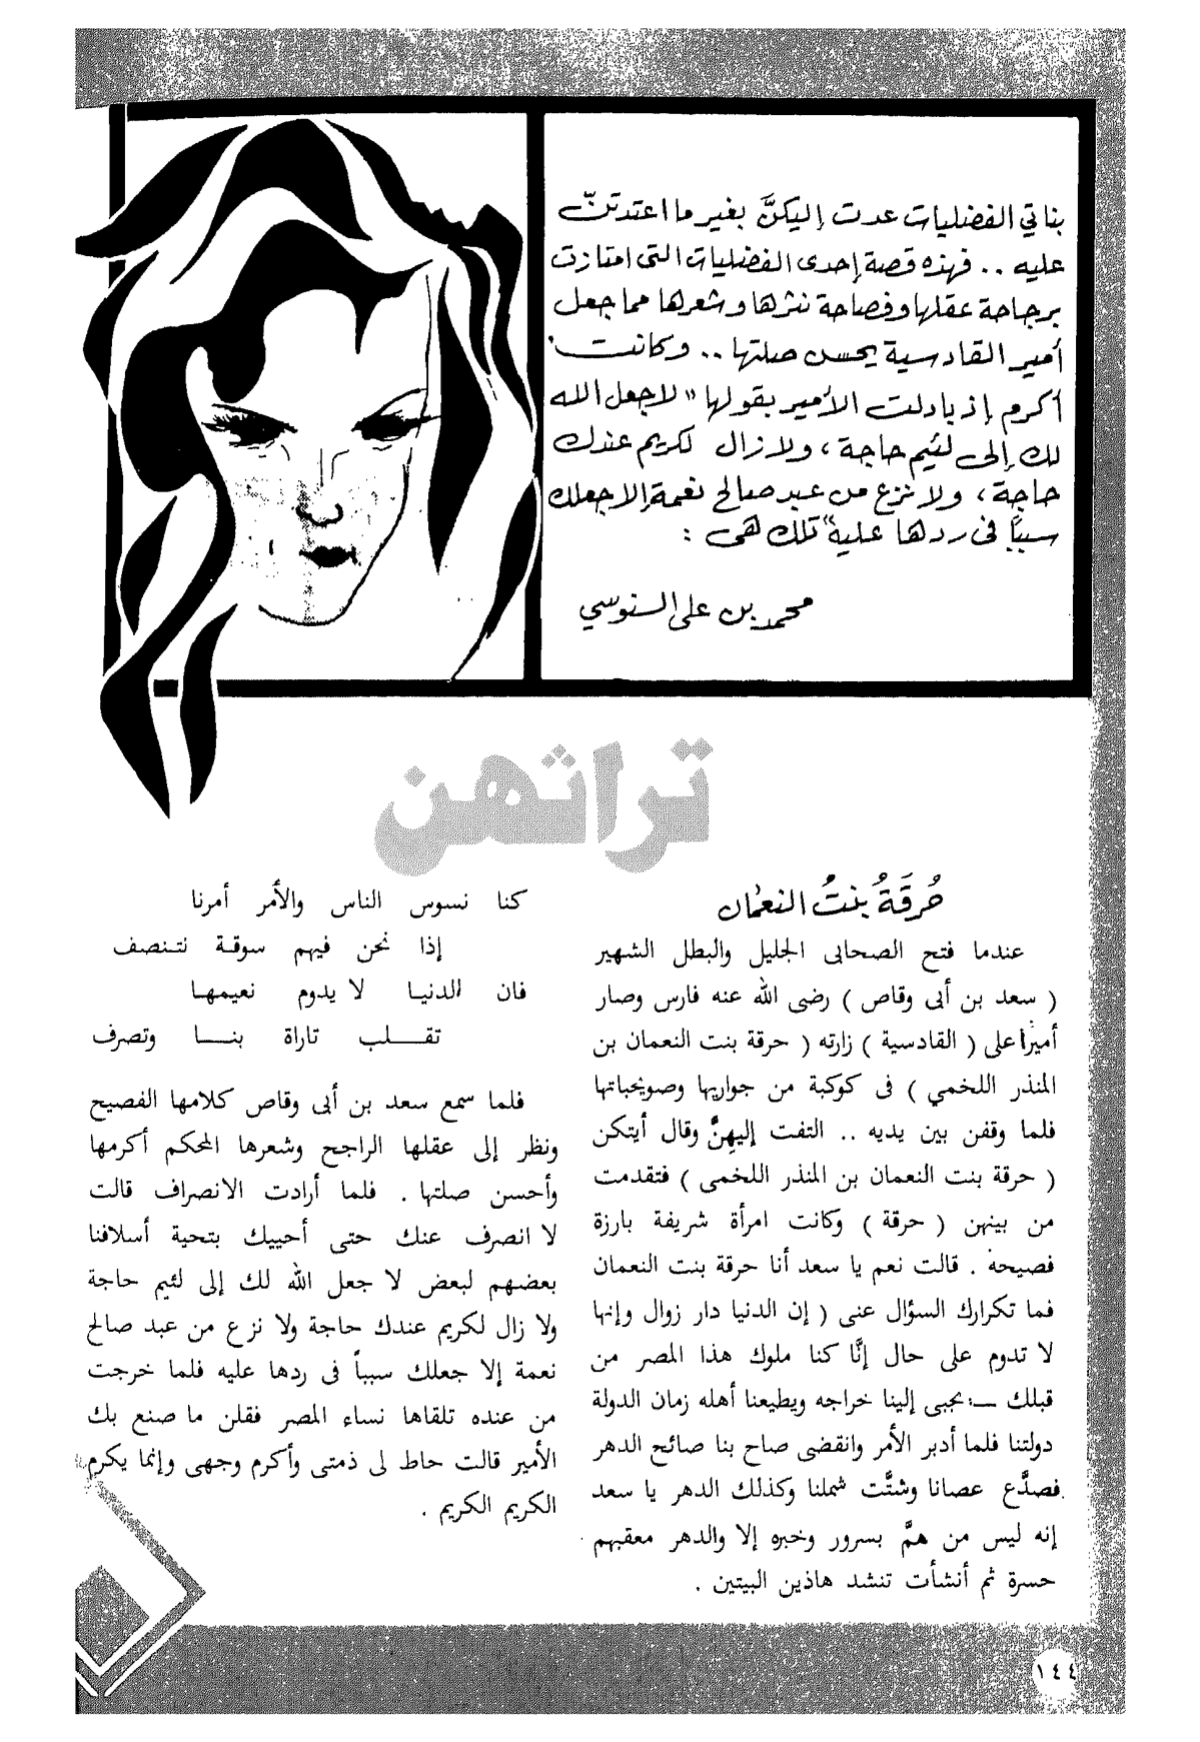 بناتي الفضليات عدت إليكنَّ بغير ما اعتدتنّ
عليه .. فهذه قصة إحدى الفضليات التى امتازت
برجاحة عقلها وفصاحة نثرها وشعرها مما جعل
أمير القادسية يحسن صلتها .. وكانت
أكرم إذ بادلت الأمير بقولها "لا جعل الله
لك إلى لئيم حاجة، ولا زال لكريم عندك
حاجة، ولا نزع من عبد صالح نعمة إلا جعلك
سببًا فى ردها علية" تلك هى :
محمد بن على السنوسي
تراثهن
حُرقَةُ بنتُ النعمان
عندما فتح الصحابى الجليل والبطل الشهير
( سعد بن أبى وقاص ) رضى الله عنه فارس وصار
أميرا على ( القادسية ) زارته ( حرقة بنت النعمان بن
المنذر اللخمي ) فى كوكبة من جواريها وصويحباتها
فلما وقفن بين يديه .. التفت إليهنَّ وقال أيتكن
( حرقة بنت النعمان بن المنذر اللخمى ) فتقدمت
من بينهن ( حرقة ) وكانت امرأة شريفة بارزة
فصيحة . قالت نعم يا سعد أنا حرقة بنت النعمان
فما تكرارك السؤال عنى ( إن الدنيا دار زوال وإنها
لا تدوم على حال إنَّا كنا ملوك هذا المصر من
قبلك ــ يجبى إلينا خراجه ويطيعنا أهله زمان الدولة
دولتنا فلما أدبر الأمر وانقضى صاح بنا صائح الدهر
فصدَّع عصانا وشتَّت شملنا وكذلك الدهر يا سعد
إنه ليس من همَّ بسرور وخبره إلا والدهر معقبهم
حسرة ثم أنشأت تنشد هاذين البيتين .
كنا نسوس الناس والأمر أمرنا
إذا نحن فيهم سوقة نتنصف
فان الدنيا لا يدوم نعيمها
تقـــلب تاراة بنـــا وتصرف
فلما سمع سعد بن أبى وقاص كلامها الفصيح
ونظر إلى عقلها الراجح وشعرها المحكم أكرمها
وأحسن صلتها . فلما أرادت الانصراف قالت
لا انصرف عنك حتى أحييك بتحية أسلافنا
بعضهم لبعض لا جعل الله لك إلى لئيم حاجة
ولا زال لكريم عندك حاجة ولا نزع من عبد صالح
نعمة إلا جعلك سبباً فى ردها عليه فلما خرجت
من عنده تلقاها نساء المصر فقلن ما صنع بك
الأمير قالت حاط لى ذمتى وأكرم وجهى وإنما يكرم
الكريم الكريم .
١٤٤